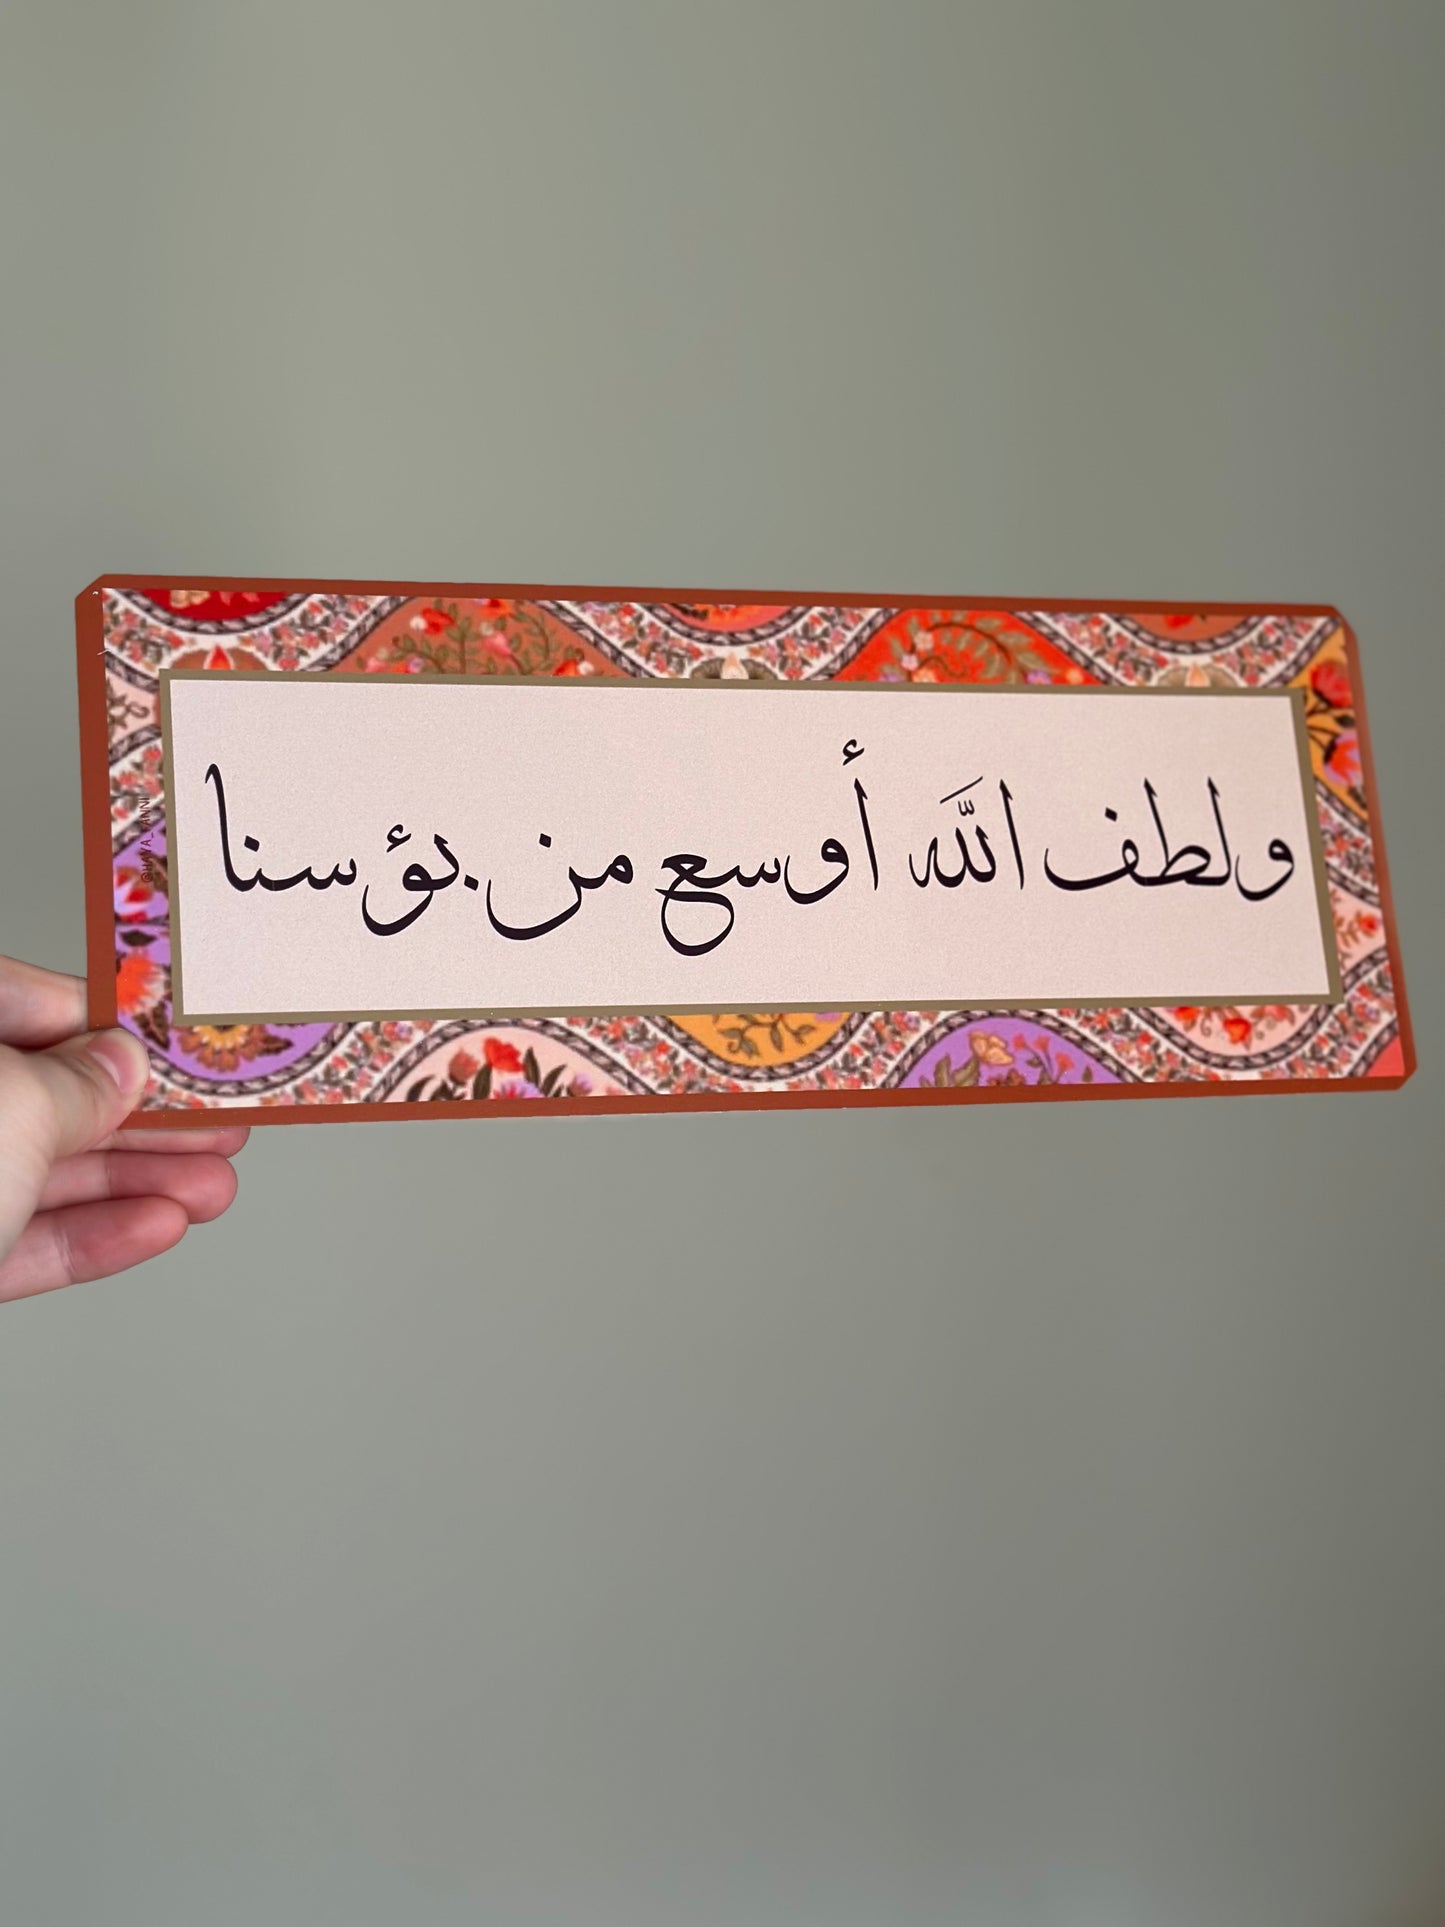 ولطف اللّٰه أوسع من بؤسنا